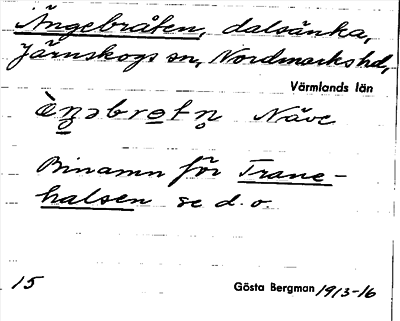 Ängebråten, dalsänka,
Järnskogs sn, Nordmarks hd,
Värmlands län
Näve
Binamn för Trane-
halsen se d. o.
15 Gösta Bergman 1913-16